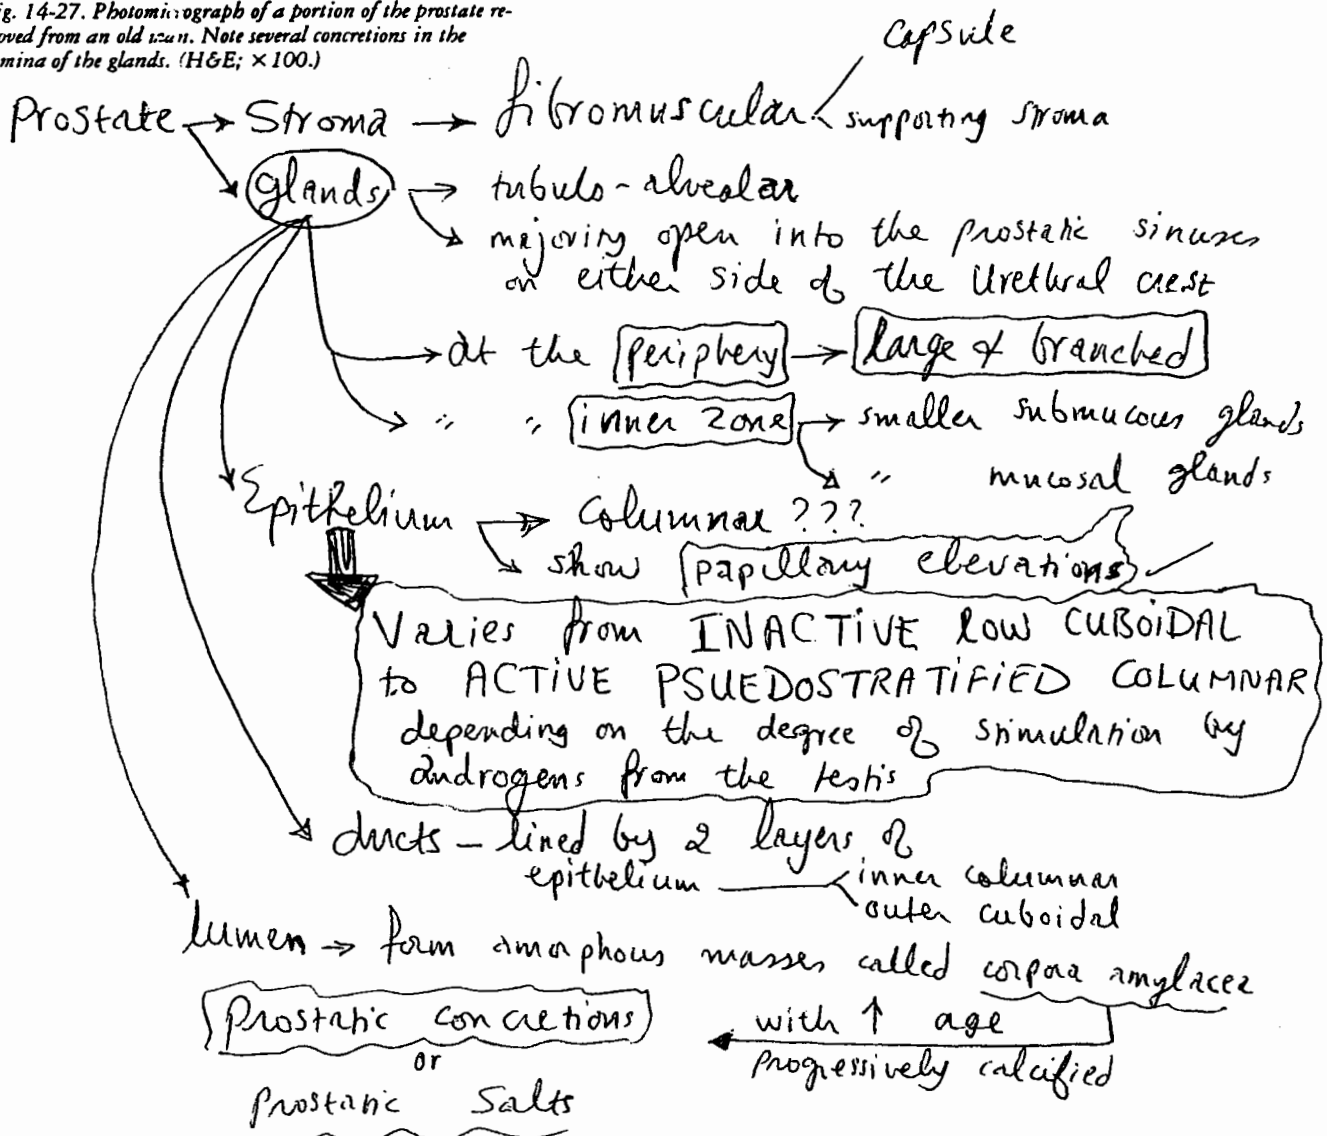 g. 14-27. Photomicrograph of a portion of the prostate re-
oved from an old man. Note several concretions in the
mina of the glands. (H&E; ×100.)
capsule
Prostate → Stroma → fibromuscular < supporting stroma
glands → tubulo-alveolar
majoring open into the prostatic sinuses
on either side of the Urethral crest
→ at the periphery → large & branched
→ " " inner zone → smaller submucous glands
" mucosal glands
Epithelium → Columnar ???
show papillary elevations ✓
Varies from INACTIVE low CUBOIDAL
to ACTIVE PSUEDOSTRATIFIED COLUMNAR
depending on the degree of stimulation by
androgens from the testis
ducts – lined by 2 layers of
epithelium < inner columnar
outer cuboidal
lumen → form amorphous masses called corpora amylacea
Prostatic concretions ← with ↑ age
or progressively calcified
Prostatic Salts